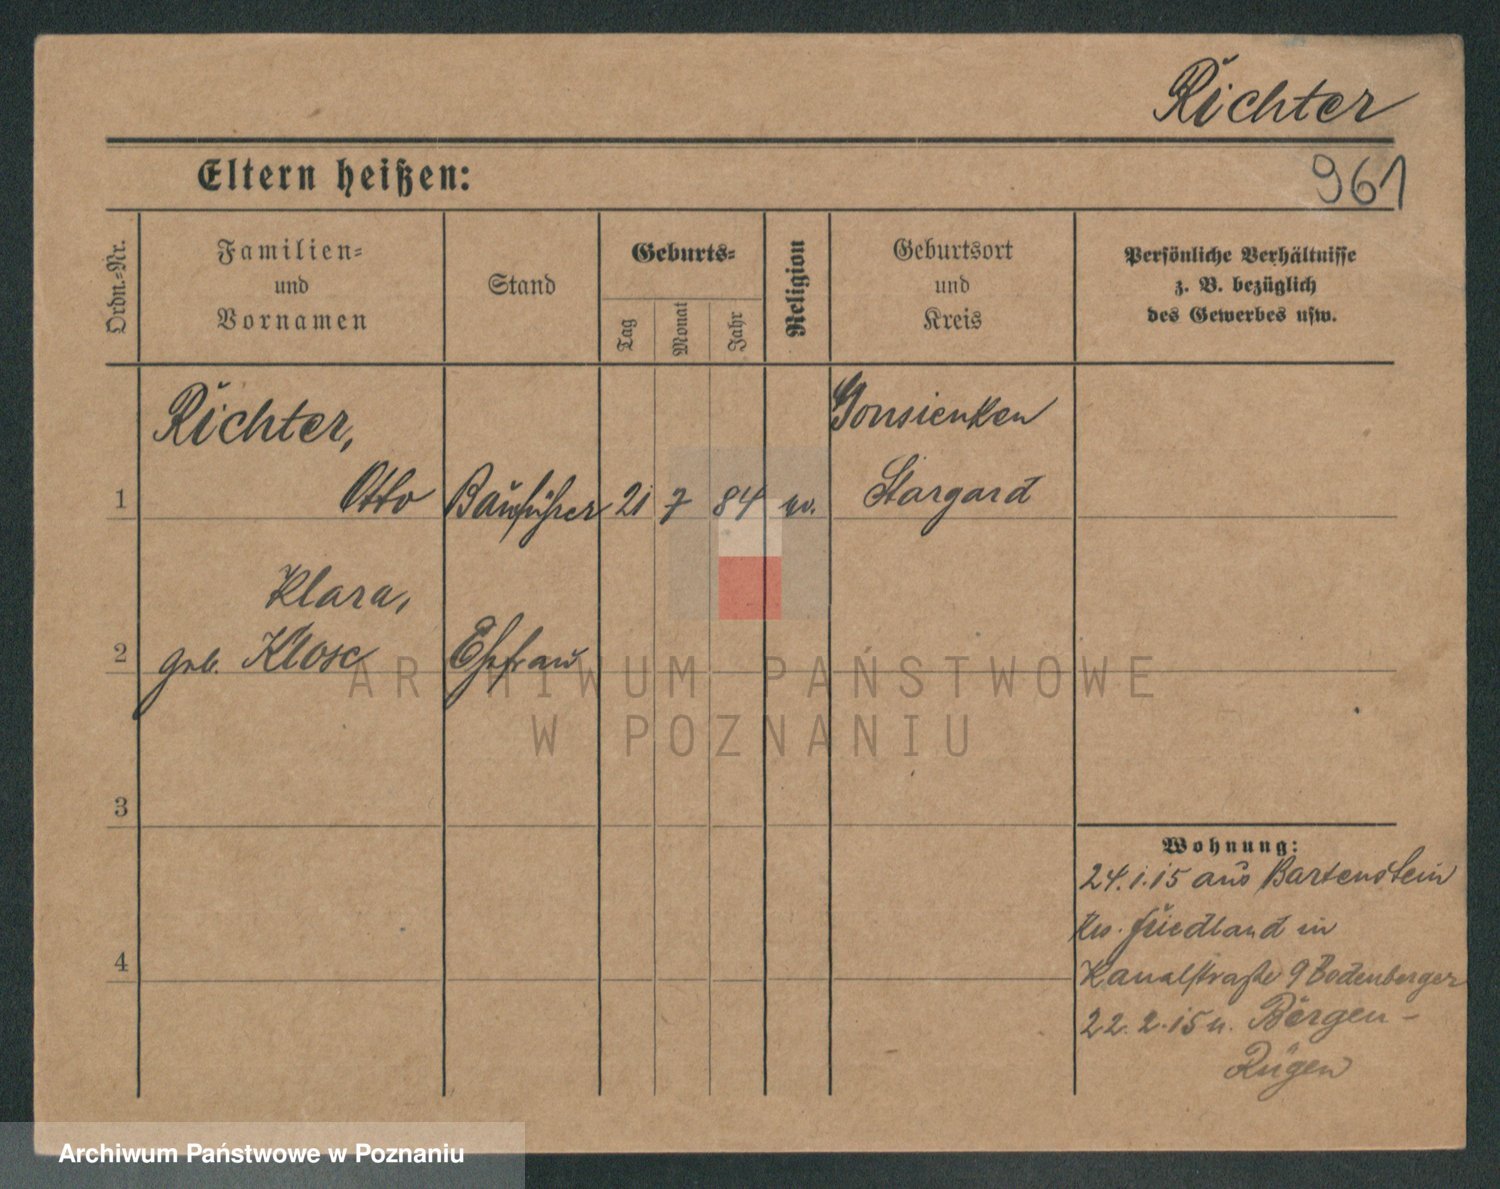 Richter
Eltern heißen:
961
Ordn.-Nr.
Familien-
und
Vornamen
Stand
Geburts-
Tag
Monat
Jahr
Religion
Geburtsort
und
Kreis
Persönliche Verhältnisse
z. B. bezüglich
des Gewerbes usw.
Richter,
Gonsienken
1 Otto Bauführer 21 7 84 ev. Stargard
Klara,
2 geb. Klose Ehefrau
ARCHIWUM PAŃSTWOWE
W POZNANIU
3
Wohnung:
24.1.15 aus Bartenstein
Krs. Friedland in
4
Kanalstraße 9 Bodenberger
22.2.15 n. Bergen-
Rügen
Archiwum Państwowe w Poznaniu